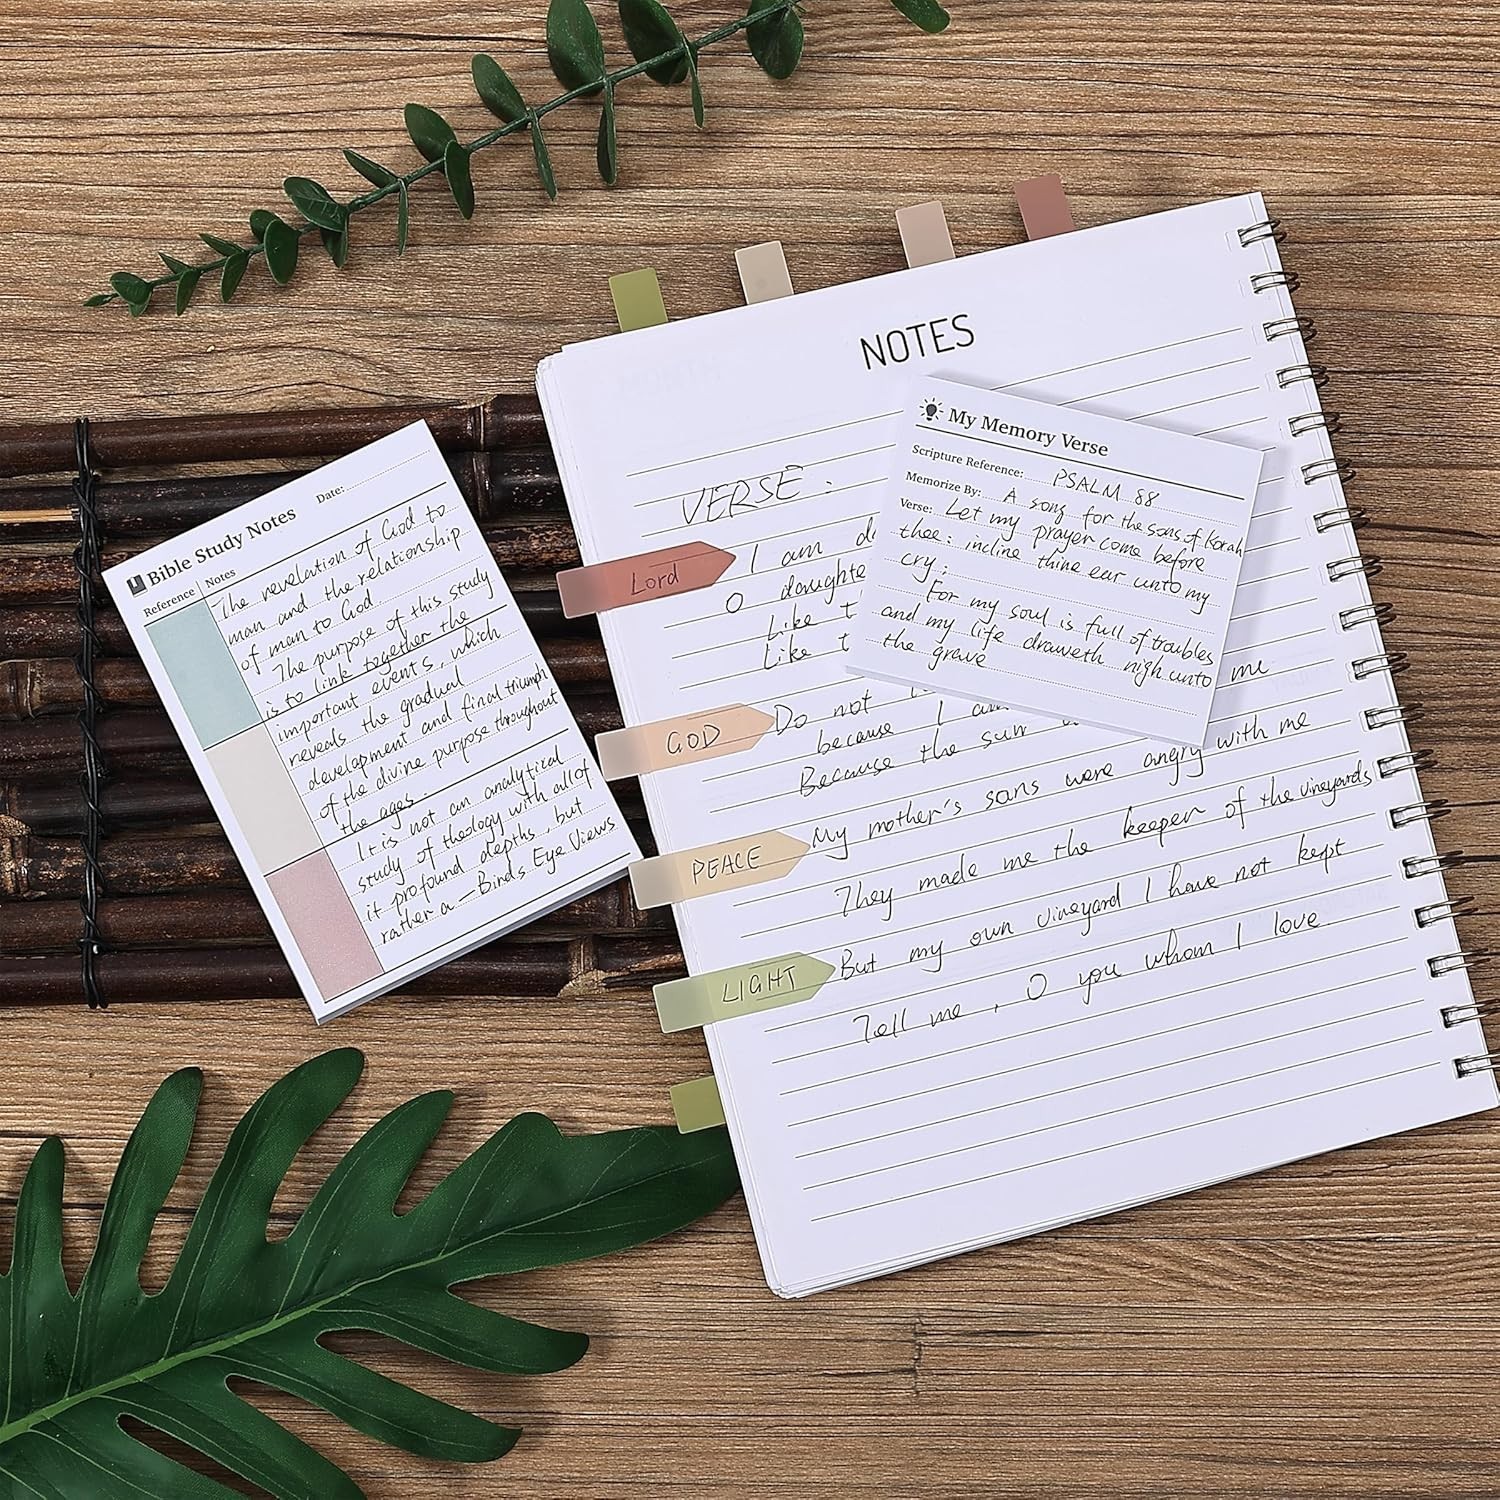 Bible Study Notes
Date:
Reference
Notes
The revelation of God to
man and the relationship
of man to God
The purpose of this study
is to link together the
important events, which
reveals the gradual
development and final triumph
of the divine purpose throughout
the ages.
It is not an analytical
study of theology with all of
it profound depths, but
rather a — Birds Eye Views
NOTES
VERSE:
I am da
O daughte
Like t
Like t
me
Do not
because I am
Because the sun
My mother's sons were angry with me
They made me the keeper of the vineyards
But my own vineyard I have not kept
Tell me, O you whom I love
Lord
GOD
PEACE
LIGHT
My Memory Verse
Scripture Reference: PSALM 88
Memorize By: A song for the sons of Korah
Verse: Let my prayer come before
thee: incline thine ear unto my
cry:
For my soul is full of troubles
and my life draweth nigh unto
the grave